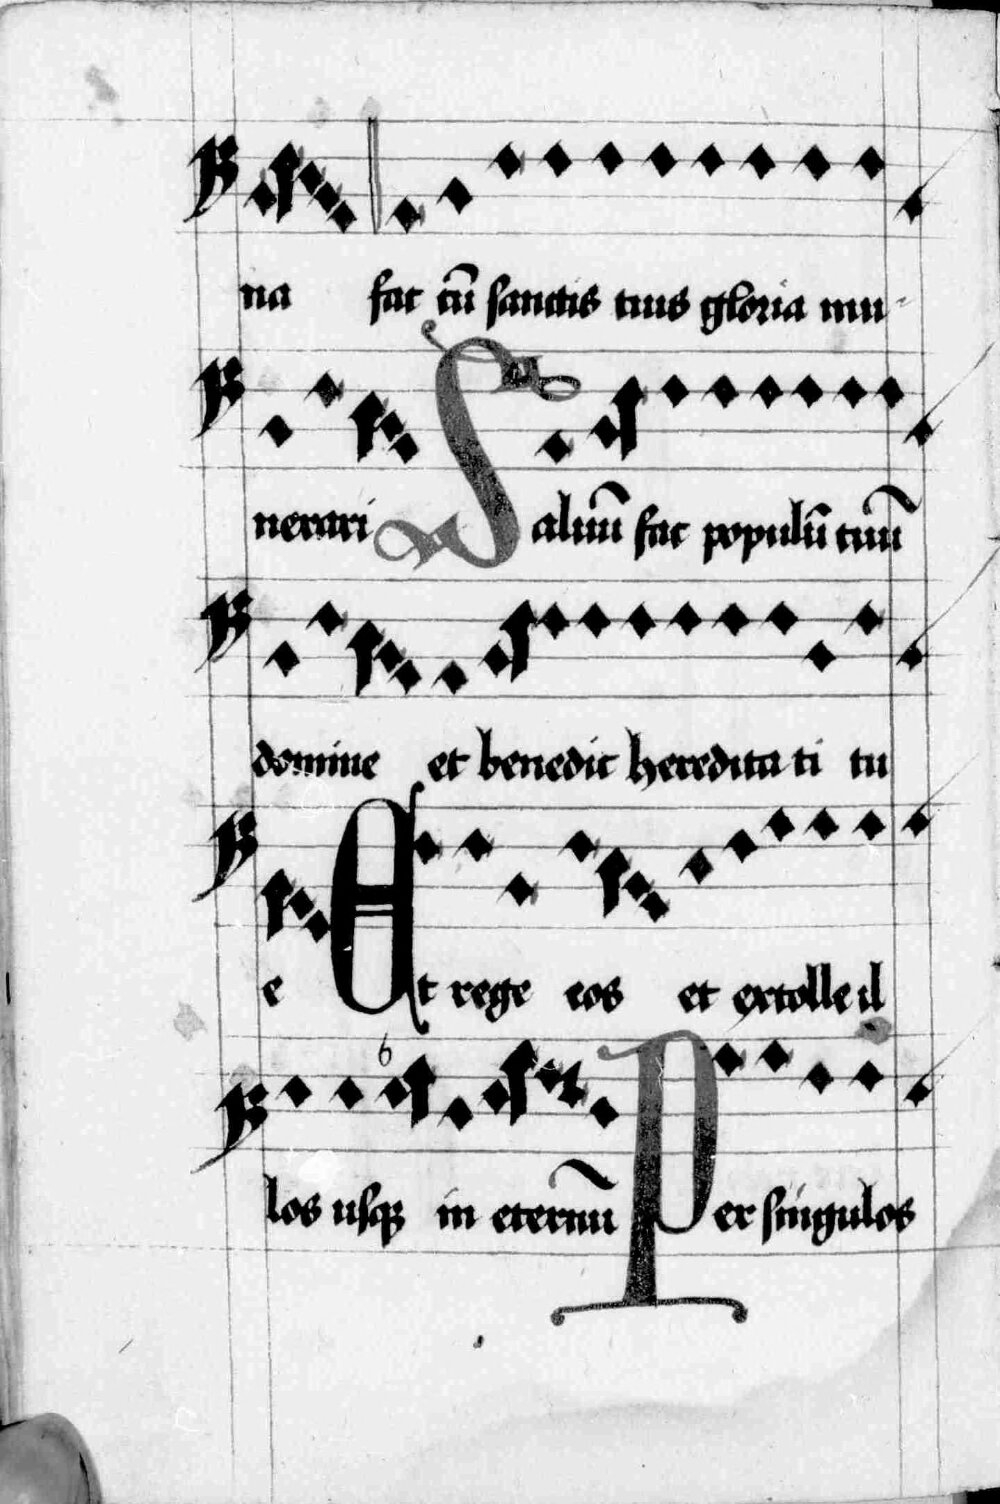 na fac cū sanctis tuis gloria mu-
nerari Saluū fac populū tuū
domine et benedic heredita ti tu
e Et rege eos et extolle il
los usqꝫ in eternū Per singulos